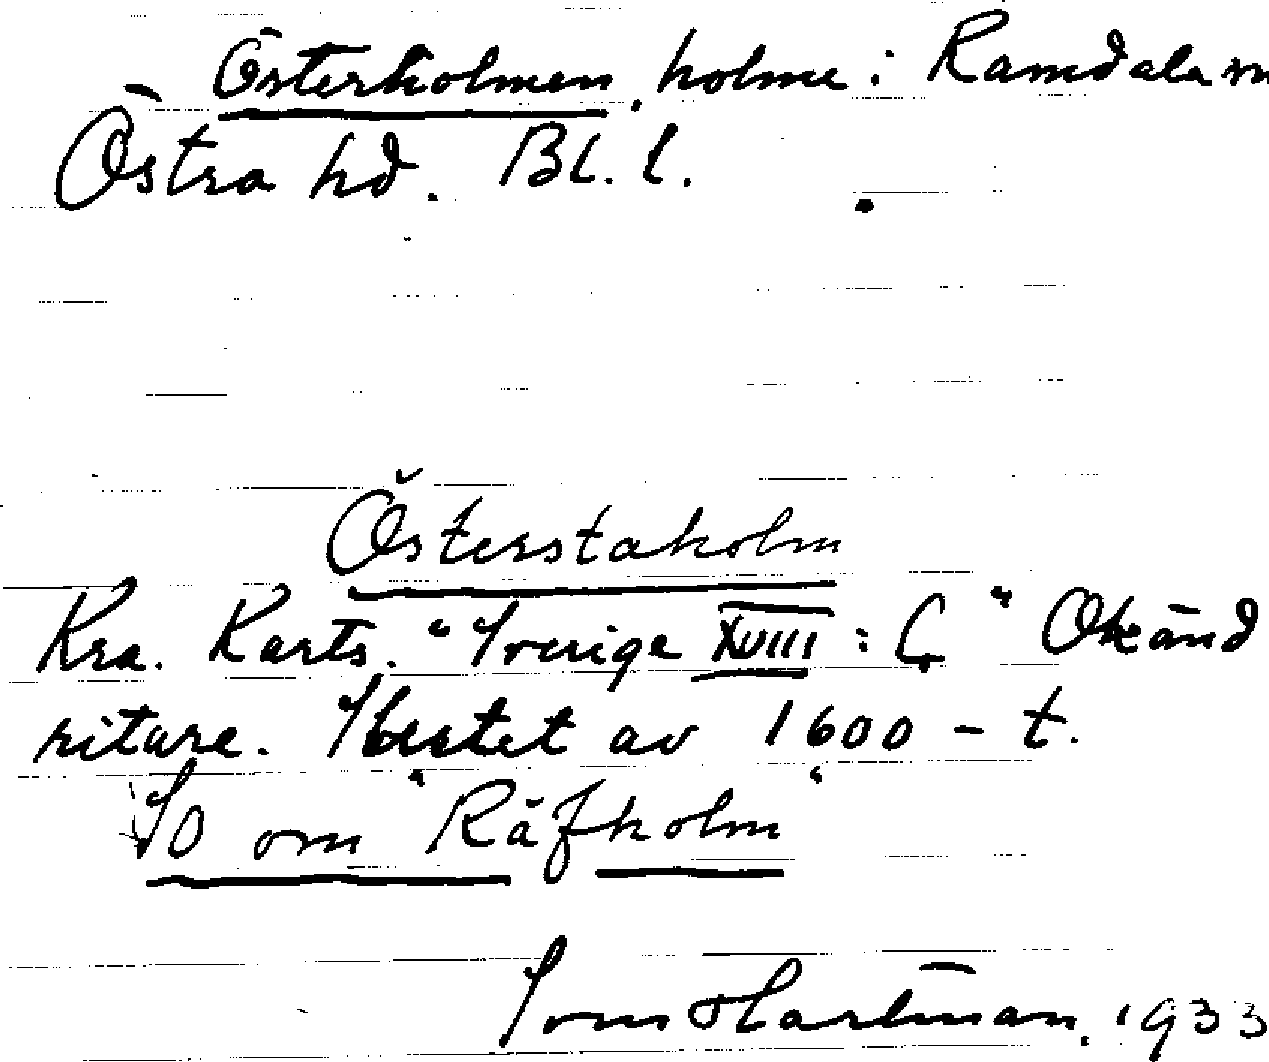 Österholmen, holme i Ramdala sn
Östra hd. Bl. l.
Österstaholm
Kra. Karts. "Sverige XVIII : C" Okänd
ritare. Slutet av 1600-t.
SO om "Räfholm"
Hartman. 1933